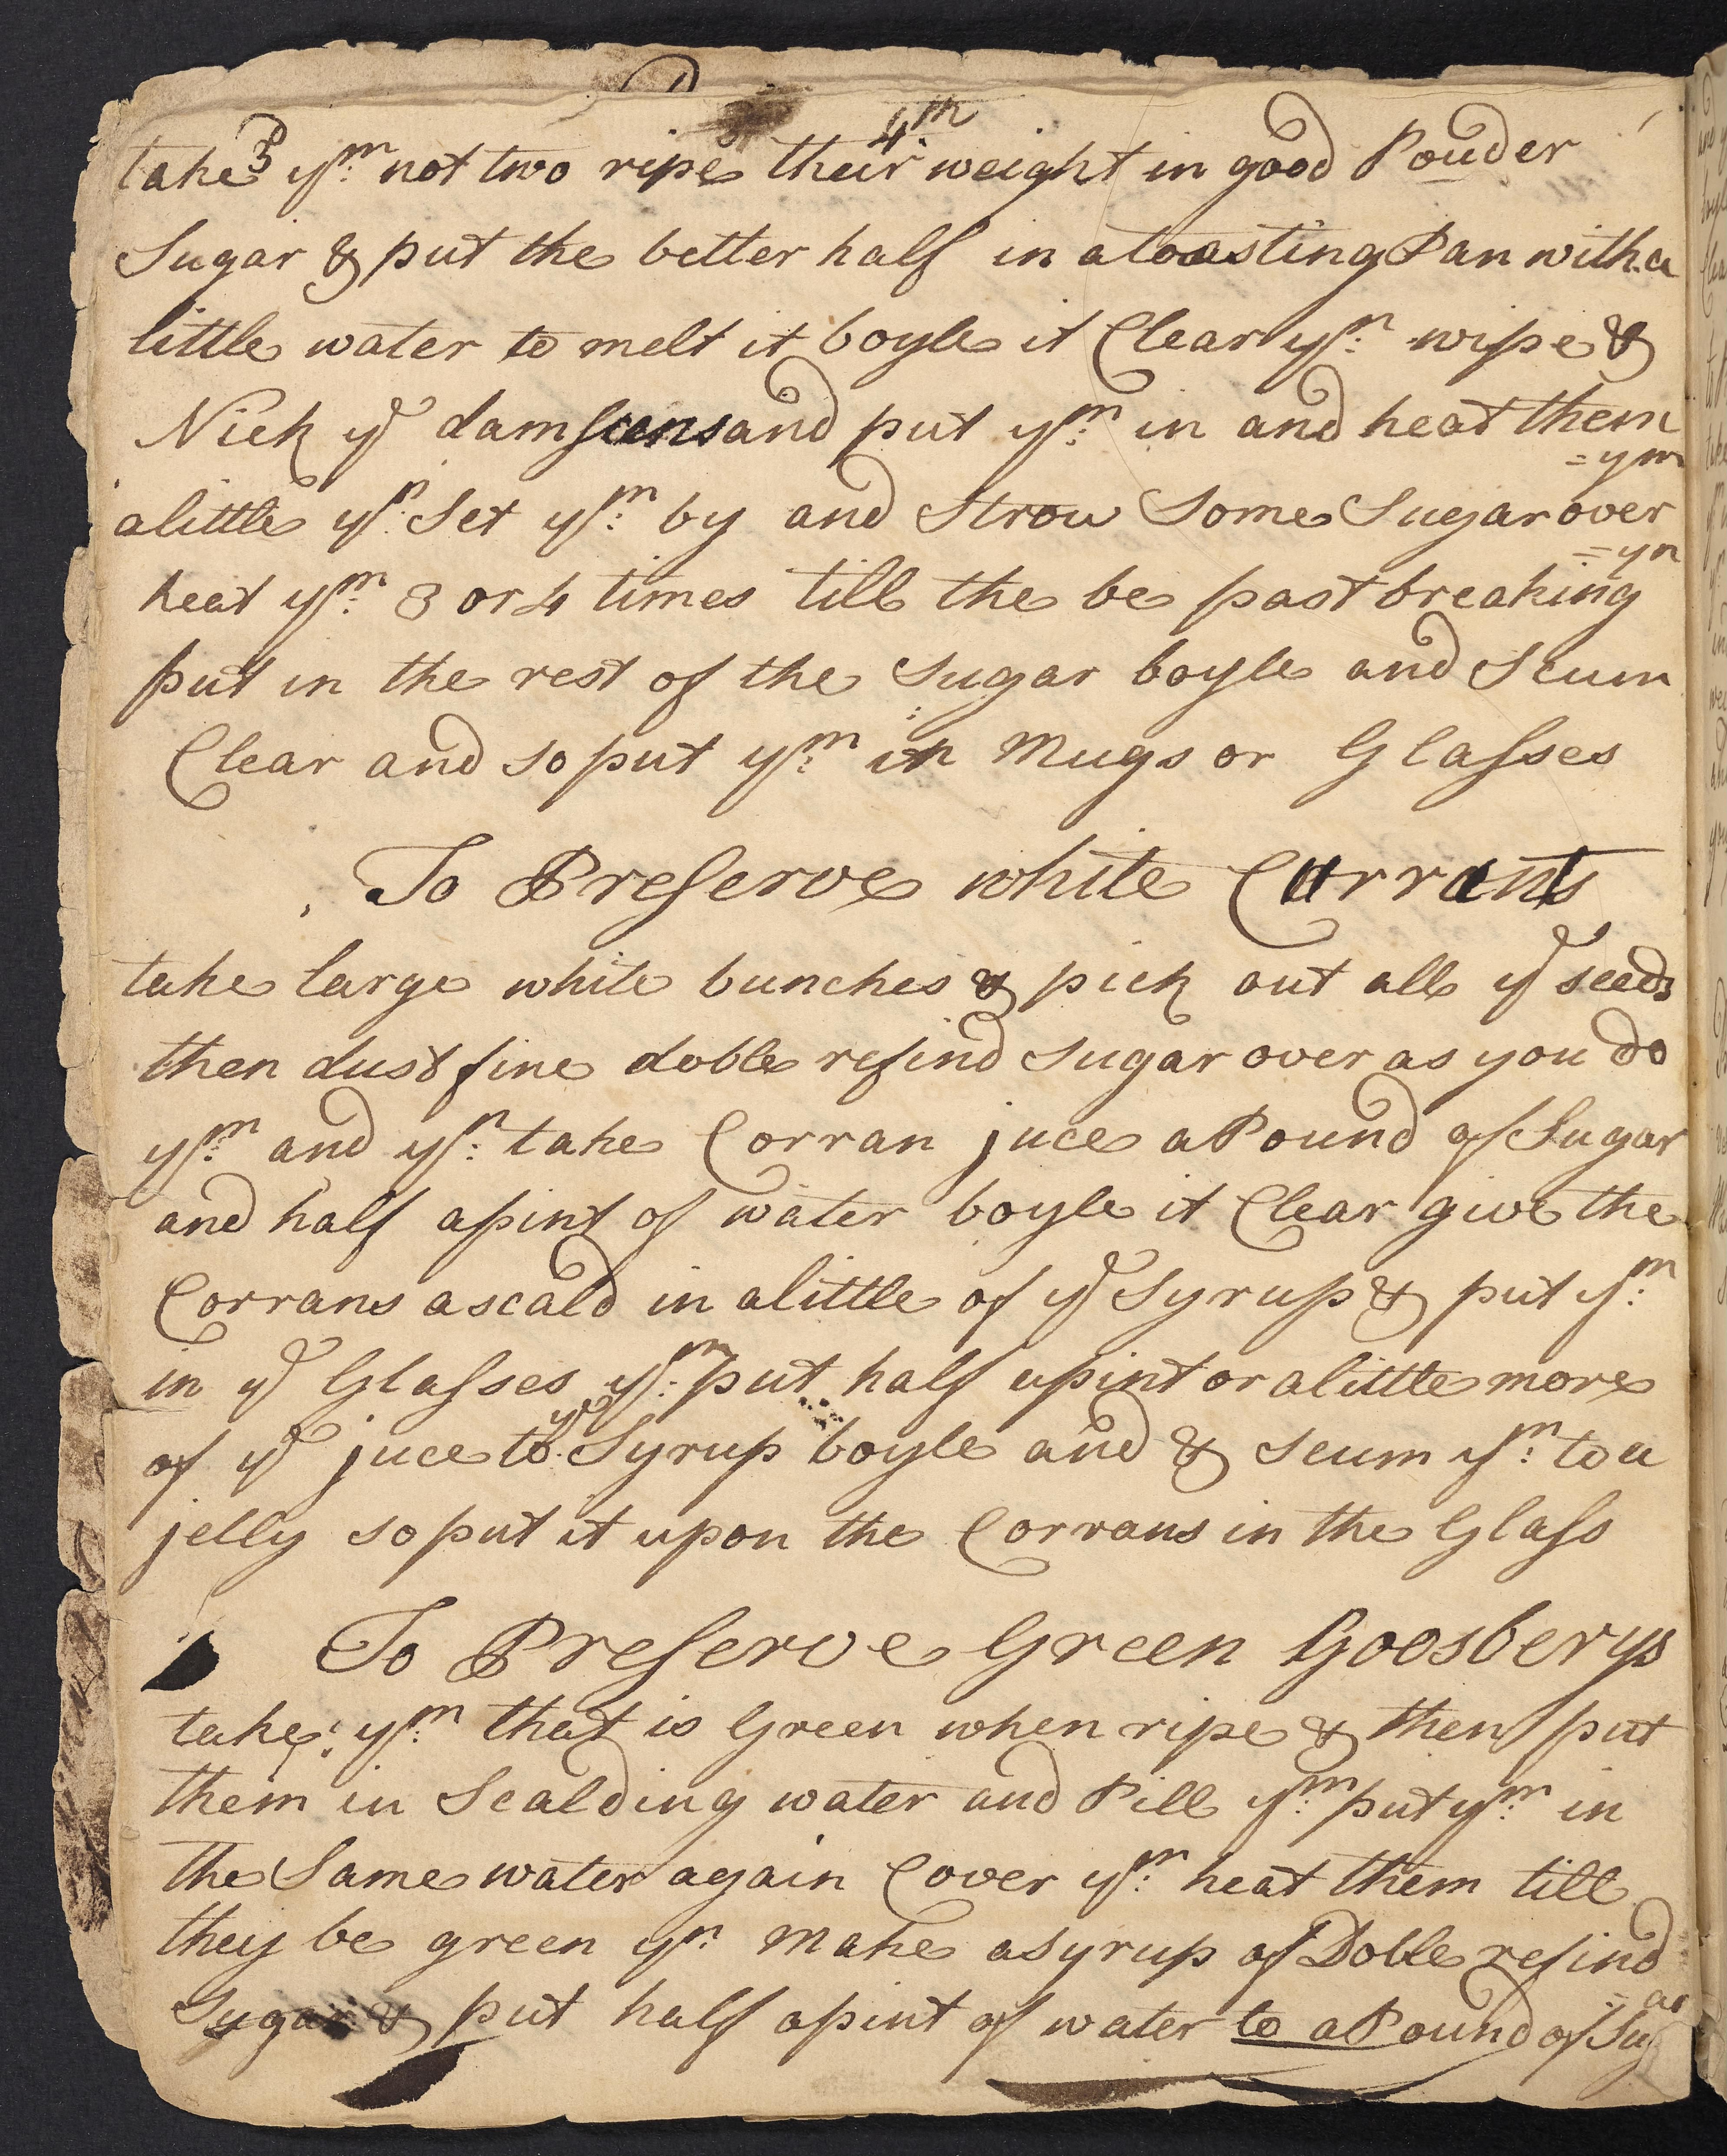 take 3 ym: not two ripe their 4th weight in good Pouder
Sugar & put the better half in a toasting Pan with a
little water to melt it boyle it Clear yn: wipe &
Nick ye damscens and put ym: in and heat them
alittle yn: Set ym: by and Strow Some Sugar over =ym
heat ym: 3 or 4 times till the be past breaking =yn
put in the rest of the Sugar boyle and Scum
Clear and so put ym: in Mugs or Glasses
To Preserve white Currants
take large white bunches & pick out all ye seeds
then dust fine doble refind sugar over as you do
ym: and yn: take Corran juce a Pound of Sugar
and half apint of water boyle it Clear give the
Corrans a scald in alittle of ye Syrup & put ym:
in ye Glasses yn: put half apint or alittle more
of ye juce to ye Syrup boyle and & scum ym: to a
jelly so put it upon the Corrans in the Glass
To Preserve Green Goosberys
take ym: that is Green when ripe & then put
them in Scalding water and Pill ym: put ym: in
the Same water again Cover ym: heat them till
they be green yn: Make a Syrup of Doble refind
Sugar & put half apint of water to a Pound of Sug =ar